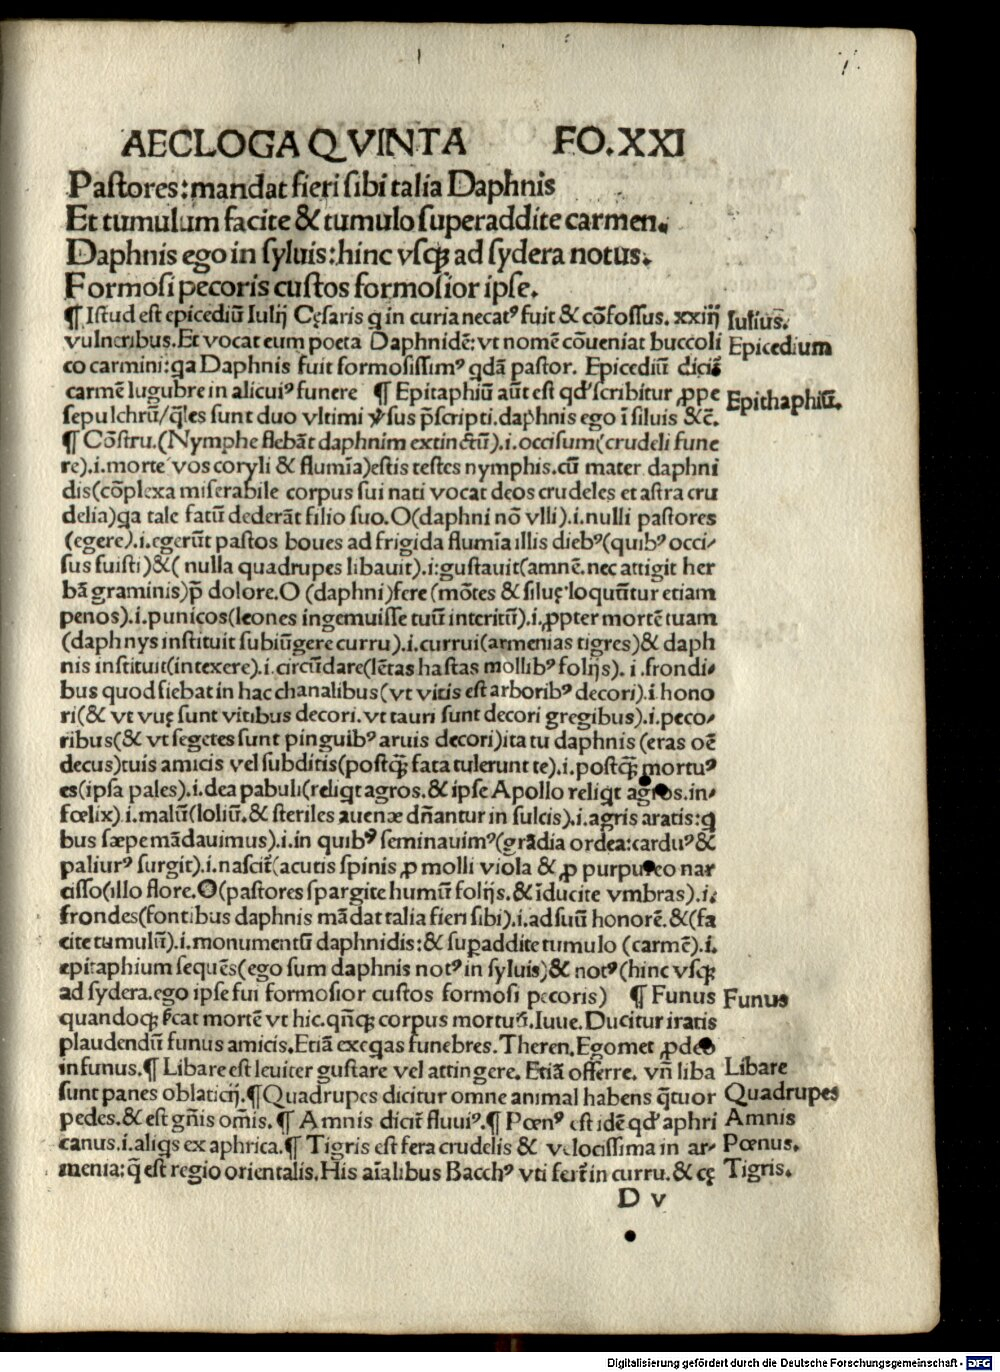 AECLOGA QVINTA FO.XXI
Paſtores:mandat fieri ſibi talia Daphnis
Et tumulum facite & tumulo ſuperaddite carmen.
Daphnis ego in ſyluis:hinc vſqꝫ ad ſydera notus.
Formoſi pecoris cuſtos formoſior ipſe.
¶ Iſtud eſt epicediū Iulij Cęſaris q in curia necatꝰ fuit & cōfoſſus. xxiij Iulius.
vulneribus. Et vocat eum poeta Daphnidē: vt nomē cōueniat buccoli Epicedium
co carmini: qa Daphnis fuit formoſiſſimꝰ qdā paſtor. Epicediū dicit̄
carmē lugubre in alicuiꝰ funere ¶ Epitaphiū aūt eſt qd' ſcribitur ꝓpe Epithaphiū.
ſepulchrū/q̄les ſunt duo vltimi ꝟſus p̄ſcripti. daphnis ego ī ſiluis &c̄.
¶ Cōſtru.(Nymphe flebāt daphnim extinctū).i.occiſum(crudeli fune
re).i.morte vos coryli & flumīa)eſtis teſtes nymphis. cū mater daphni
dis(cōplexa miſerabile corpus ſui nati vocat deos crudeles et aſtra cru
delia)qa tale fatū dederāt filio ſuo. O(daphni nō vlli).i.nulli paſtores
(egere).i.egerūt paſtos boues ad frigida flumīa illis diebꝰ(quibꝰ occi⸗
ſus fuiſti)&( nulla quadrupes libauit).i:guſtauit(amnē. nec attigit her
bā graminis)p̄ dolore. O (daphni)fere (mōtes & ſiluę loquūtur etiam
penos).i.punicos(leones ingemuiſſe tuū interitū).i.ꝓpter mortē tuam
(daphnys inſtituit ſubiūgere curru).i.currui(armenias tigres)& daph
nis inſtituit(intexere).i.circūdare(lētas haſtas mollibꝰ folijs). i .frondi⸗
bus quod fiebat in hac chanalibus(vt vitis eſt arboribꝰ decori).i hono
ri(& vt vuę ſunt vitibus decori. vt tauri ſunt decori gregibus).i.peco⸗
ribus(& vt ſegetes ſunt pinguibꝰ aruis decori)ita tu daphnis (eras oē
decus)tuis amicis vel ſubditis(poſtqꝫ fata tulerunt te).i.poſtqꝫ mortuꝰ
es(ipſa pales).i.dea pabuli(reliqt agros. & ipſe Apollo reliqt agros. in⸗
fœlix).i.malū(loliū. & ſteriles auenæ dn̄antur in ſulcis).i.agris aratis:q
bus ſæpe mādauimus).i.in quibꝰ ſeminauimꝰ(grādia ordea: carduꝰ &
paliurꝰ ſurgit).i.naſcit̄(acutis ſpinis ꝓ molli viola & ꝓ purpureo nar
ciſſo(illo flore. O(paſtores ſpargite humū folijs. & īducite vmbras).i.
frondes(fontibus daphnis mādat talia fieri ſibi).i.ad ſuū honorē. &(fa
cite tumulū).i.monumentū daphnidis: & ſuꝑaddite tumulo (carmē).i.
epitaphium ſequēs(ego ſum daphnis notꝰ in ſyluis)& notꝰ(hinc vſqꝫ
ad ſydera. ego ipſe fui formoſior cuſtos formoſi pecoris) ¶ Funus Funus
quandoqꝫ ſcat mortē vt hic. qn̄qꝫ corpus mortuū. Iuue. Ducitur iratis
plaudendū funus amicis. Etiā exeqas funebres. Theren. Egomet ꝓdeo
in funus. ¶ Libare eſt leuiter guſtare vel attingere. Etiā offerre. vn̄ liba Libare
ſunt panes oblaticij. ¶ Quadrupes dicitur omne animal habens q̄tuor Quadrupes
pedes. & eſt gn̄is om̄is. ¶ Amnis dicit̄ fluuiꝰ. ¶ Pœnꝰ eſt idē qd' aphri Amnis
canus.i.aliqs ex aphrica. ¶ Tigris eſt fera crudelis & velociſſima in ar⸗ Pœnus.
menia: q̄ eſt regio orientalis. His aīalibus Bacchꝰ vti fert̄ in curru. & cę Tigris.
D v
Digitalisierung gefördert durch die Deutsche Forschungsgemeinschaft - DFG